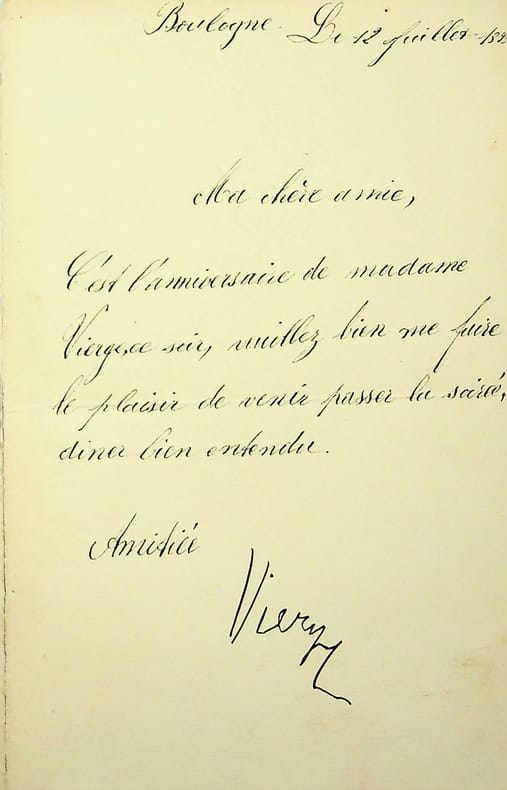 Boulogne. Le 12 juillet 189
Ma chère amie,
C'est l'anniversaire de madame
Vierge, ce soir, veuillez bien me faire
le plaisir de venir passer la soireé,
diner bien entendu.
Amitiée
Vierge